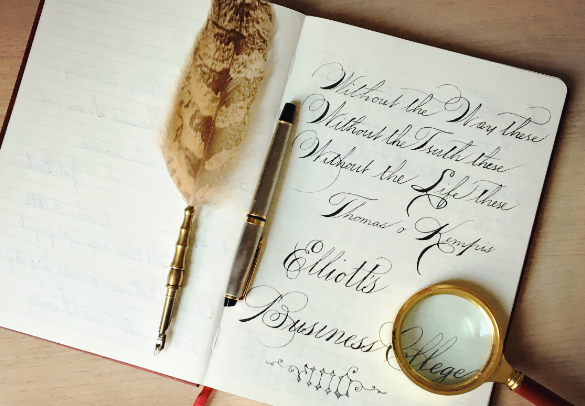 Without the Way these
Without the Truth these
Without the Life these
Thomas a Kempis
Elliott's
Business College